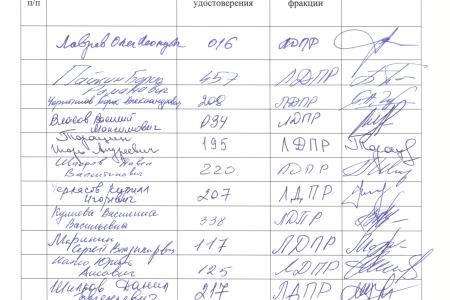 п/п удостоверения фракции
Лавров Олег Леонидович 016 ЛДПР
Пайкин Борис
Романович 457 ЛДПР
Чернышов Борис Александрович 208 ЛДПР
Власов Василий
Максимович 034 ЛДПР
Торощин
Игорь Андреевич 195 ЛДПР
Шперов Павел
Валентинович 220 ЛДПР
Черкасов Кирилл
Игоревич 207 ЛДПР
Кулиева Василина
Васильевна 338 ЛДПР
Маринин
Сергей Владимирович 117 ЛДПР
125 ЛДПР
Шилков Данил
Евгеньевич 217 ЛДПР